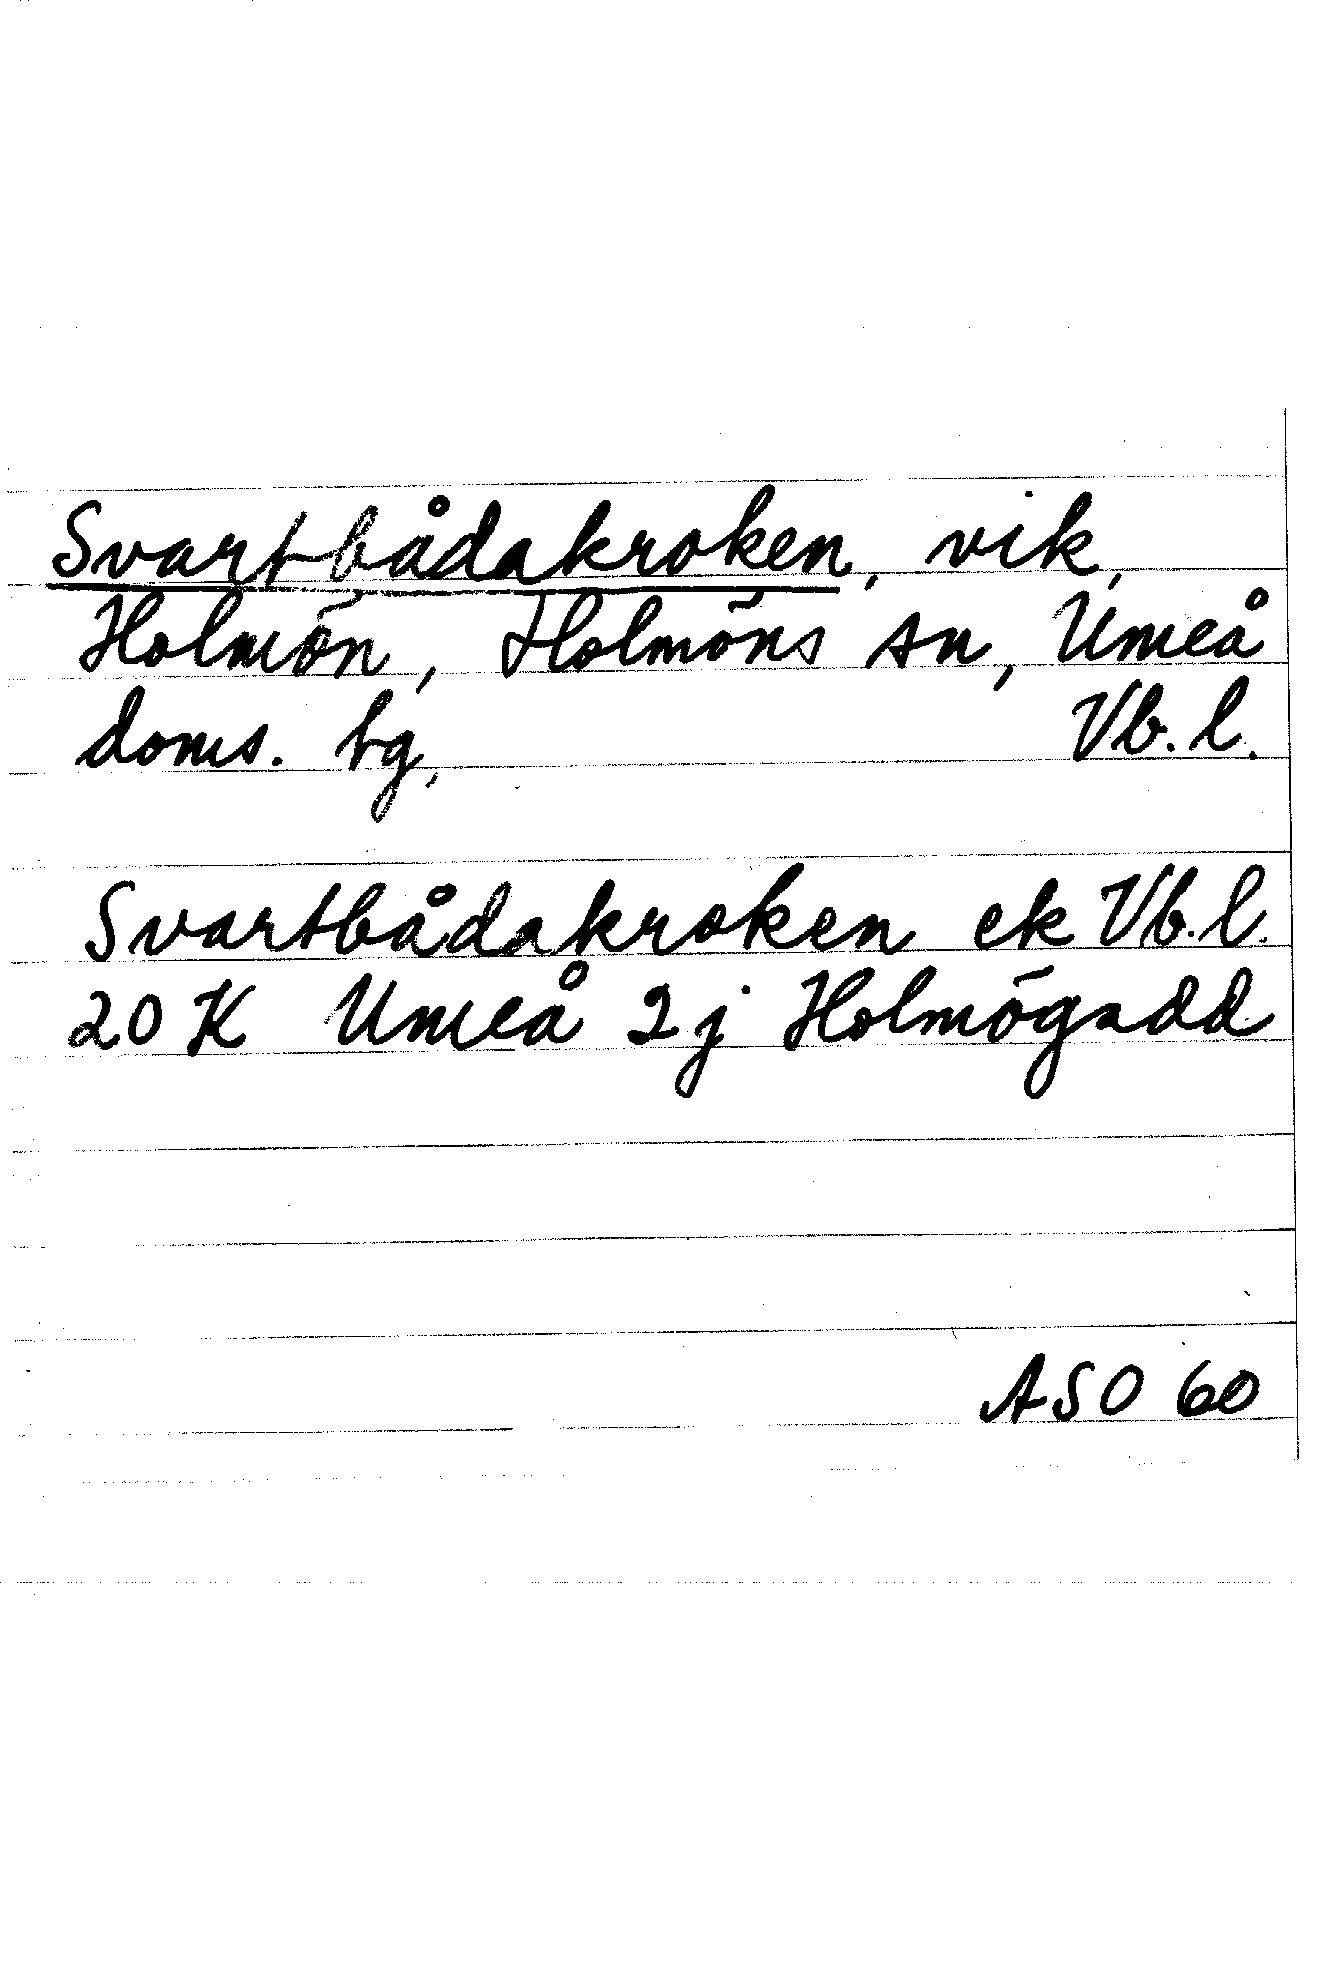 Svartbådakroken, vik,
Holmön, Holmöns sn, Umeå
doms. tg, Vb. l.
Svartbådakroken ek Vb. l.
20 K Umeå 2 j Holmögadd
ASO 60